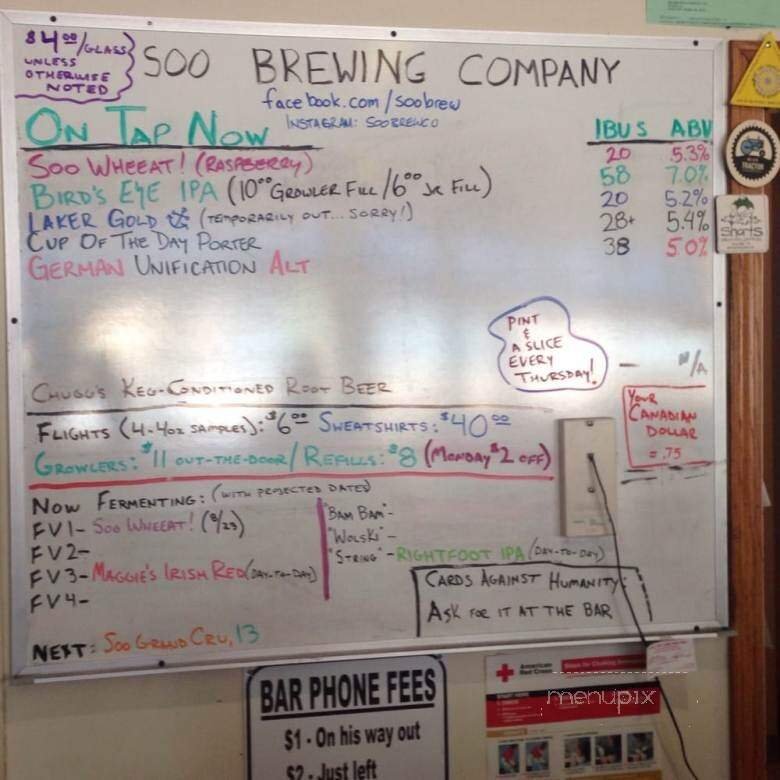 $4.00/GLASS
UNLESS
OTHERWISE
NOTED
SOO BREWING COMPANY
facebook.com/soobrew
INSTAGRAM: SOOBREWCO
ON TAP NOW IBUS ABV
SOO WHEEAT! (RASPBERRY) 20 5.3%
BIRD'S EYE IPA (10.00 GROWLER FILL/6.00 FILL) 58 7.0%
LAKER GOLD (TEMPORARILY OUT... SORRY!) 20 5.2%
CUP OF THE DAY PORTER 28+ 5.4%
GERMAN UNIFICATION ALT 38 5.0%
TRACTOR
Shorts
PINT
&
A SLICE
EVERY
THURSDAY!
CHUGG'S KEG-CONDITIONED ROOT BEER — N/A
FLIGHTS (4-4OZ SAMPLES): $6.00 SWEATSHIRTS: $40.00
GROWLERS: $11 OUT-THE-DOOR/REFILLS: $8 (MONDAY $2 OFF)
YOUR
CANADIAN
DOLLAR
= .75
NOW FERMENTING: (WITH PROJECTED DATES)
FV1- SOO WHEEAT! (9/23)
FV2-
FV3- MAGGIE'S IRISH RED (DAY-TO-DAY)
FV4-
"BAM BAM" -
"WOLSKI" -
"STRING" - RIGHTFOOT IPA (DAY-TO-DAY)
CARDS AGAINST HUMANITY:
ASK FOR IT AT THE BAR
NEXT: SOO GRAND CRU, 13
BAR PHONE FEES
$1 - On his way out
$2 - Just left
American
Red Cross
menupix